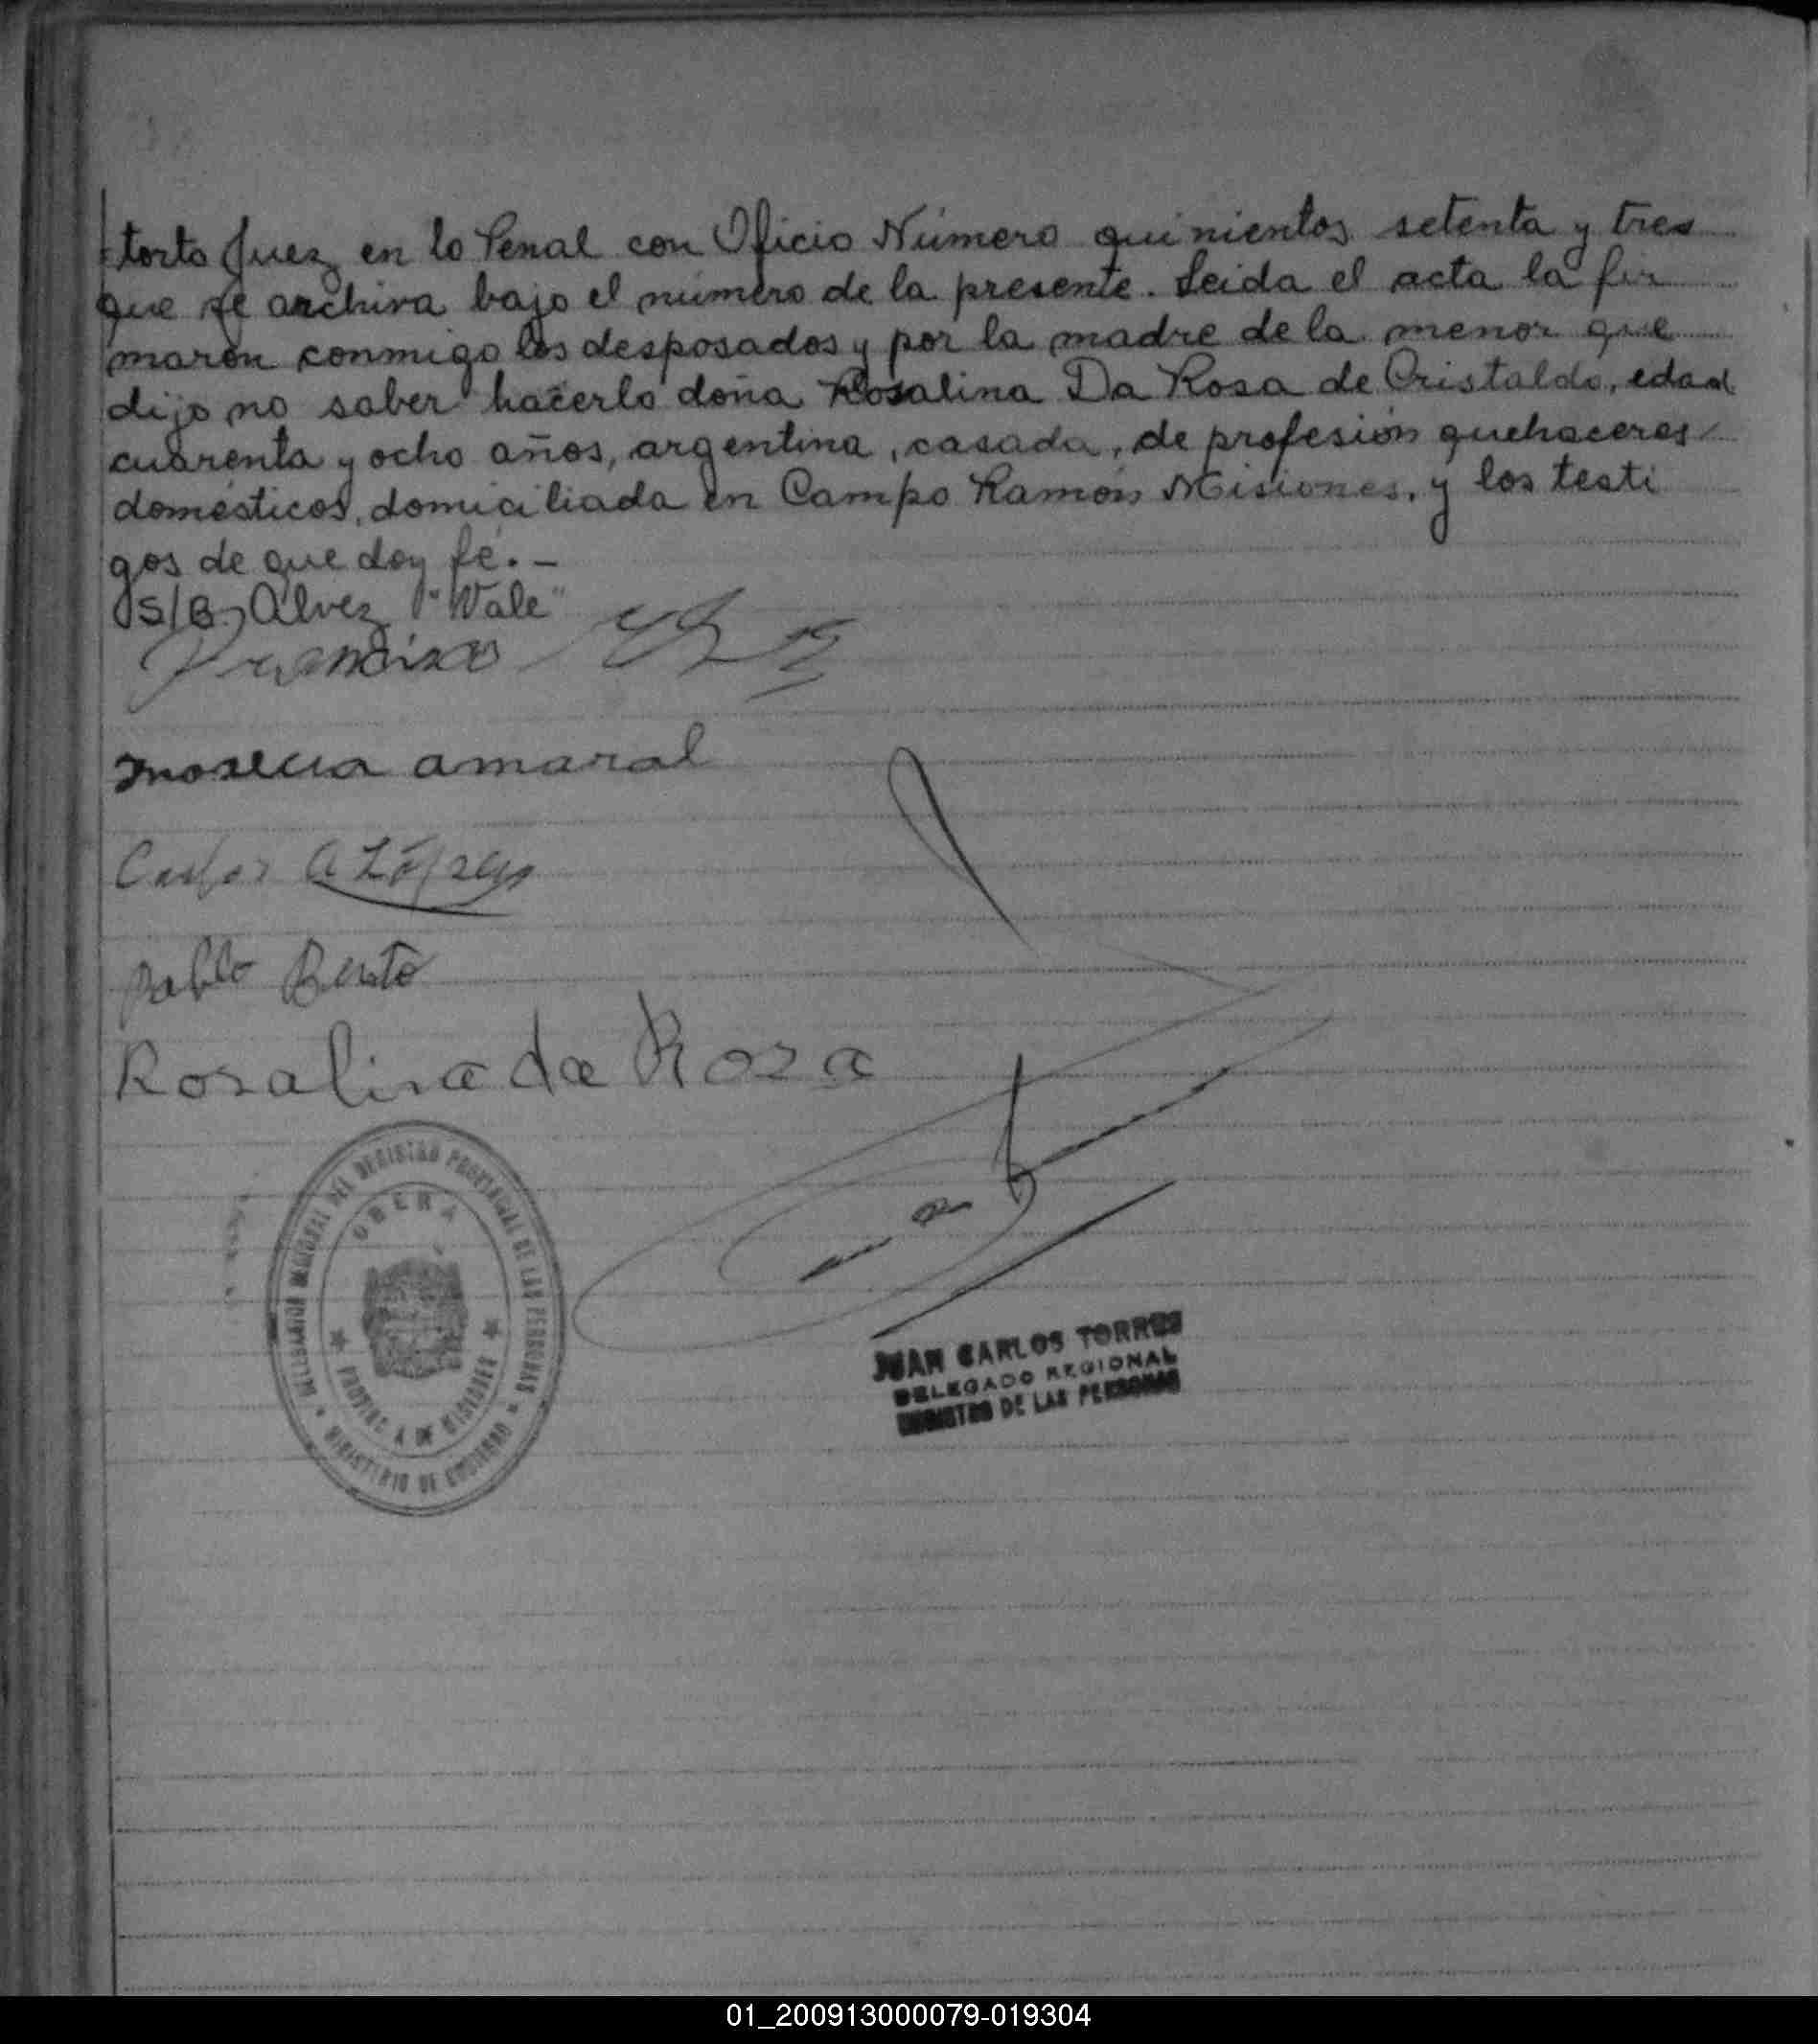 torto Juez en lo Penal con Oficio Número quinientos setenta y tres
que se archiva bajo el número de la presente. Leida el acta la fir
maron conmigo los desposados y por la madre de la menor que
dijo no saber hacerlo doña Rosalina Da Rosa de Cristaldo, edad
cuarenta y ocho años, argentina, casada, de profesión quehaceres
domésticos, domiciliada en Campo Ramón Misiones, y los testi
gos de que doy fé. –
S/B. Alvez "Vale"
Francisco
amaral
Carlos A López
Pablo Bento
Rosalina da Rosa
DELEGACION REGIONAL DEL REGISTRO PROVINCIAL DE LAS PERSONAS
OBERA
PROVINCIA DE MISIONES
MINISTERIO DE GOBIERNO
JUAN CARLOS TORRES
DELEGADO REGIONAL
REGISTRO DE LAS PERSONAS
01_200913000079-019304